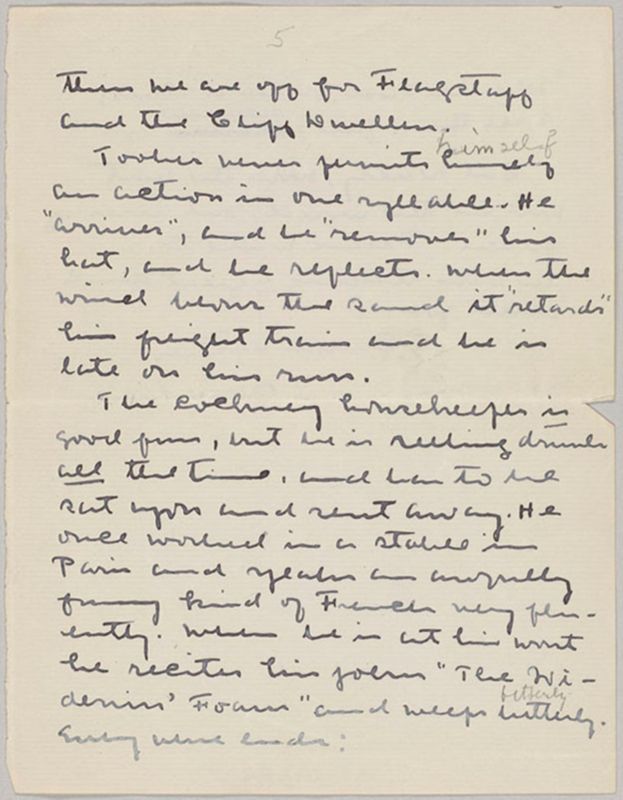 5
then we are off for Flagstaff
and the Cliff Dwellers.
himself
Tooker never permits himself
an action in one syllable. He
"arrives", and he "removes" his
hat, and he reflects. When the
wind blows the sand it "retards"
his freight train and he is
late on his run.
The cockney housekeeper is
good fun, but he is reeling drunk
all the time, and has to be
sat upon and sent away. He
once worked in a stable in
Paris and speaks an awfully
funny kind of French very flu-
ently. When he is at his worst
he recites his poem "The Wi-
bitterly
denin' Foam" and weeps bitterly.
Every verse ends: